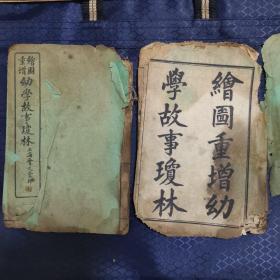 繪圖
重增
幼學故事瓊林
繪圖重增幼
學故事瓊林